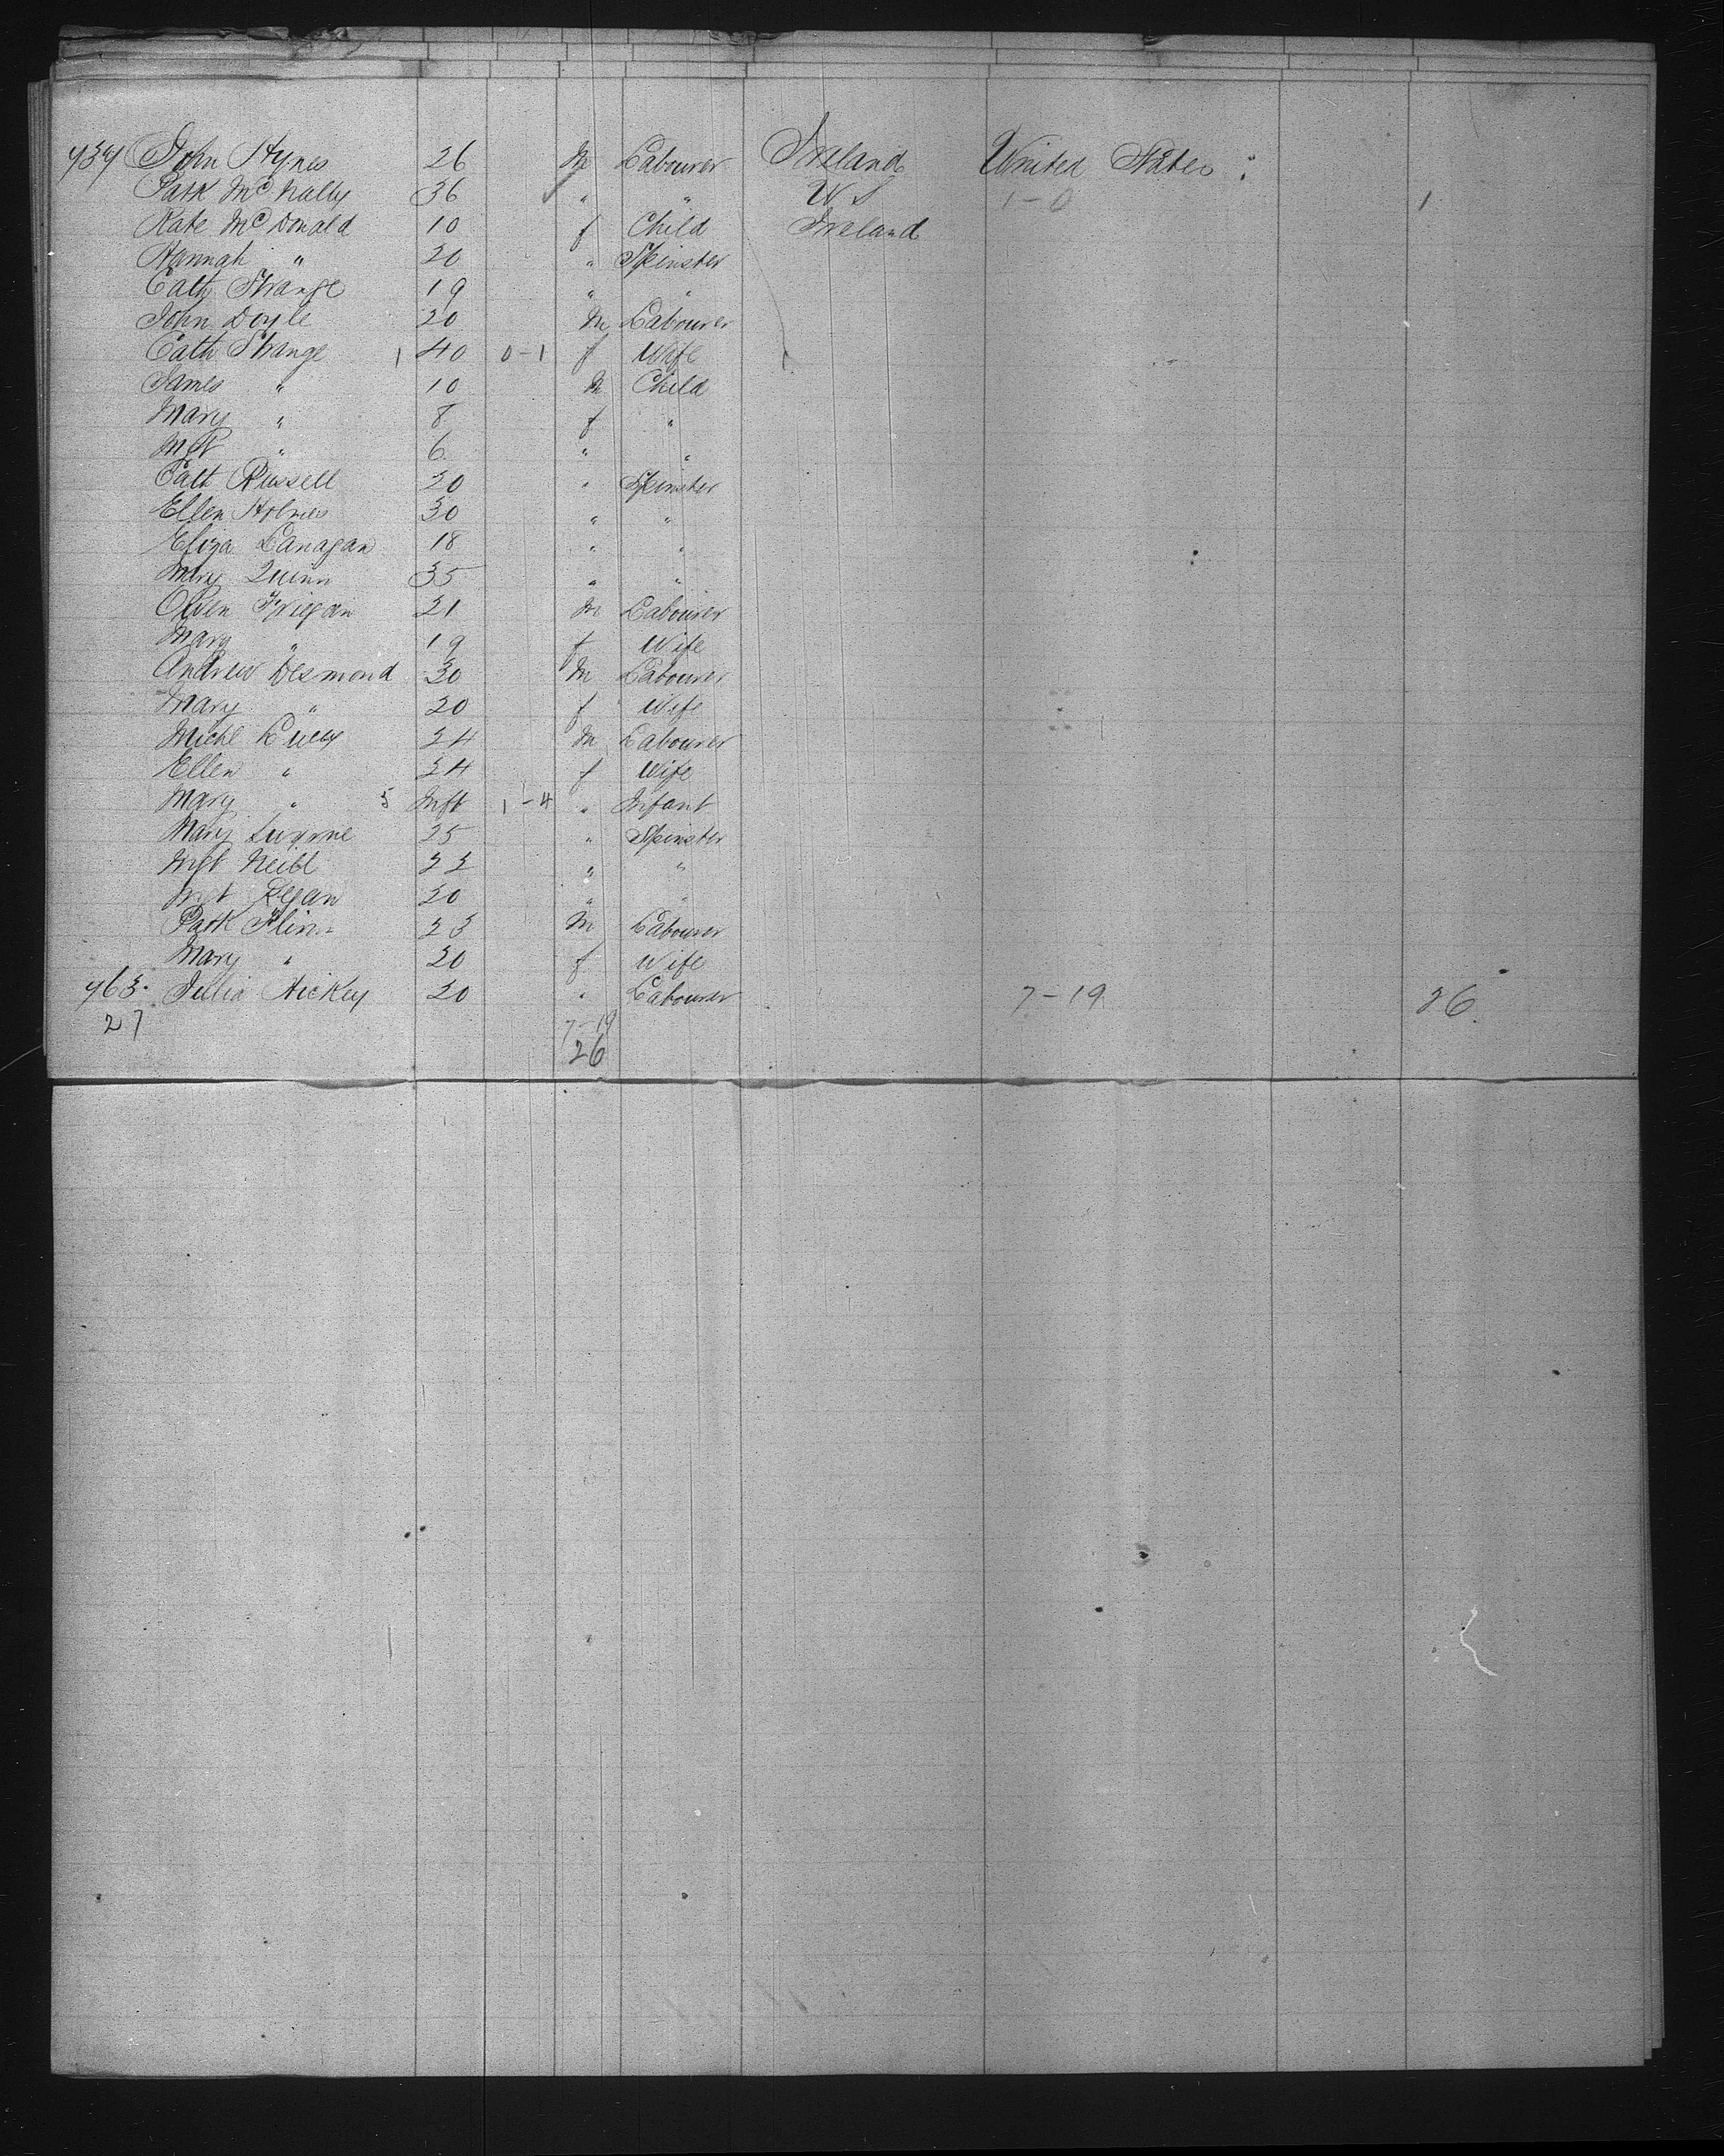 737 John Hynes 26 M Labourer Ireland United States
Patk McNally 36 " " U S 1-0 1
Kate McDonald 10 f Child Ireland
Hannah " 20 " Spinster
Cath Strange 19 " "
John Doyle 20 M Labourer
Cath Strange 1 40 0-1 f Wife
James " 10 M Child
Mary " 8 f "
Mgt " 6 " "
Cath Russell 20 " Spinster
Ellen Holmes 30 " "
Eliza Lanagan 18 " "
Mary Quinn 35 " "
Owen 21 M Labourer
Mary " 19 f Wife
Andrew Desmond 30 M Labourer
Mary " 20 f Wife
Michl Lucy 24 M Labourer
Ellen " 24 f Wife
Mary " 5 Inft 1-4 " Infant
Mary 25 " Spinster
Mgt Neill 22 " "
Mgt Regan 20 " "
Patk Flinn 23 M Labourer
Mary " 20 f Wife
763 Julia Hickey 20 " Labourer 7-19 26
27 7-19
26